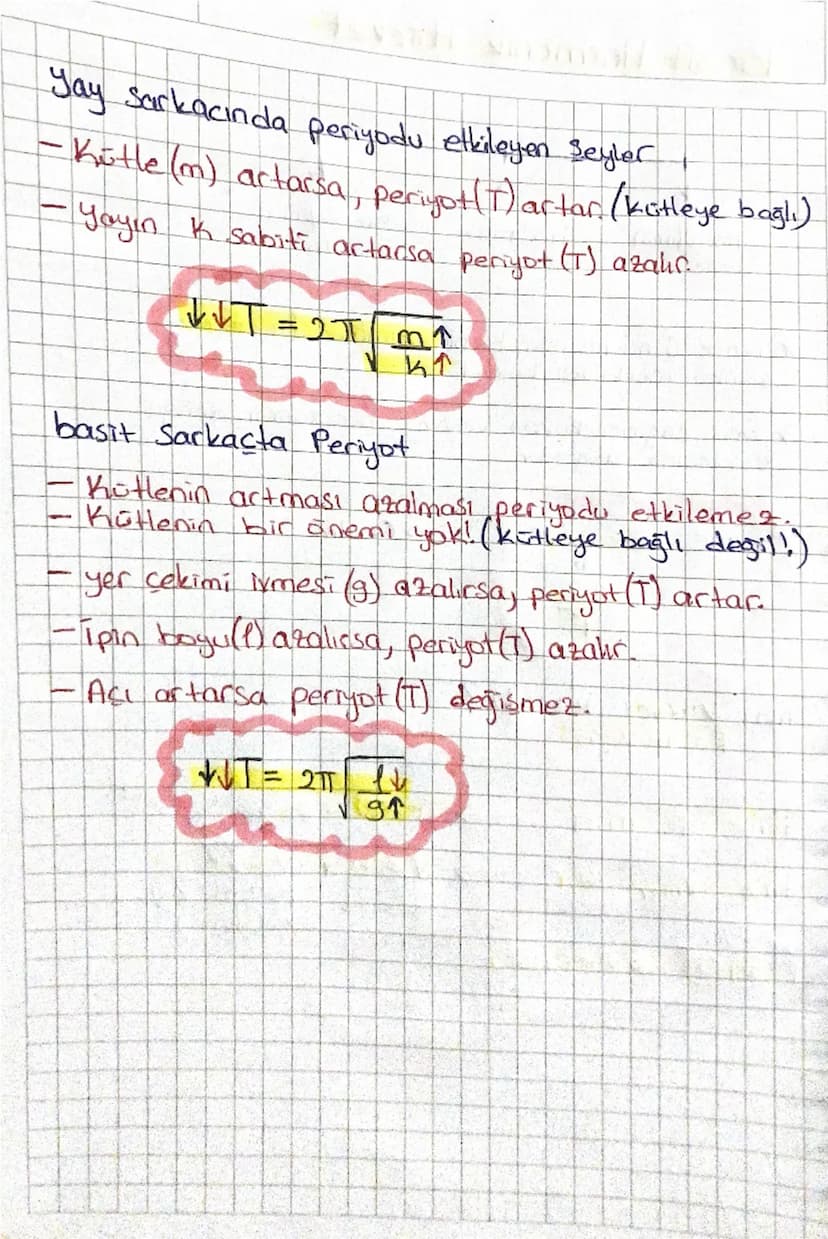 Yay Sarkacında periyodu etkileyen Şeyler
- Kütle (m) artarsa, periyot (T) artar. (kütleye bağlı)
- Yayın k sabiti artarsa periyot (T) azalır.
↓↓T = 2π√(m↑/k↑)
basit Sarkaçta Periyot
- Kütlenin artması azalması periyodu etkilemez.
- Kütlenin bir önemi yok! (kütleye bağlı değil!)
- yer çekimi ivmesi (g) azalırsa, periyot (T) artar.
- İpin boyu (l) azalırsa, periyot (T) azalır.
- Açı artarsa periyot (T) değişmez.
↓↓T = 2π√(l↓/g↑)